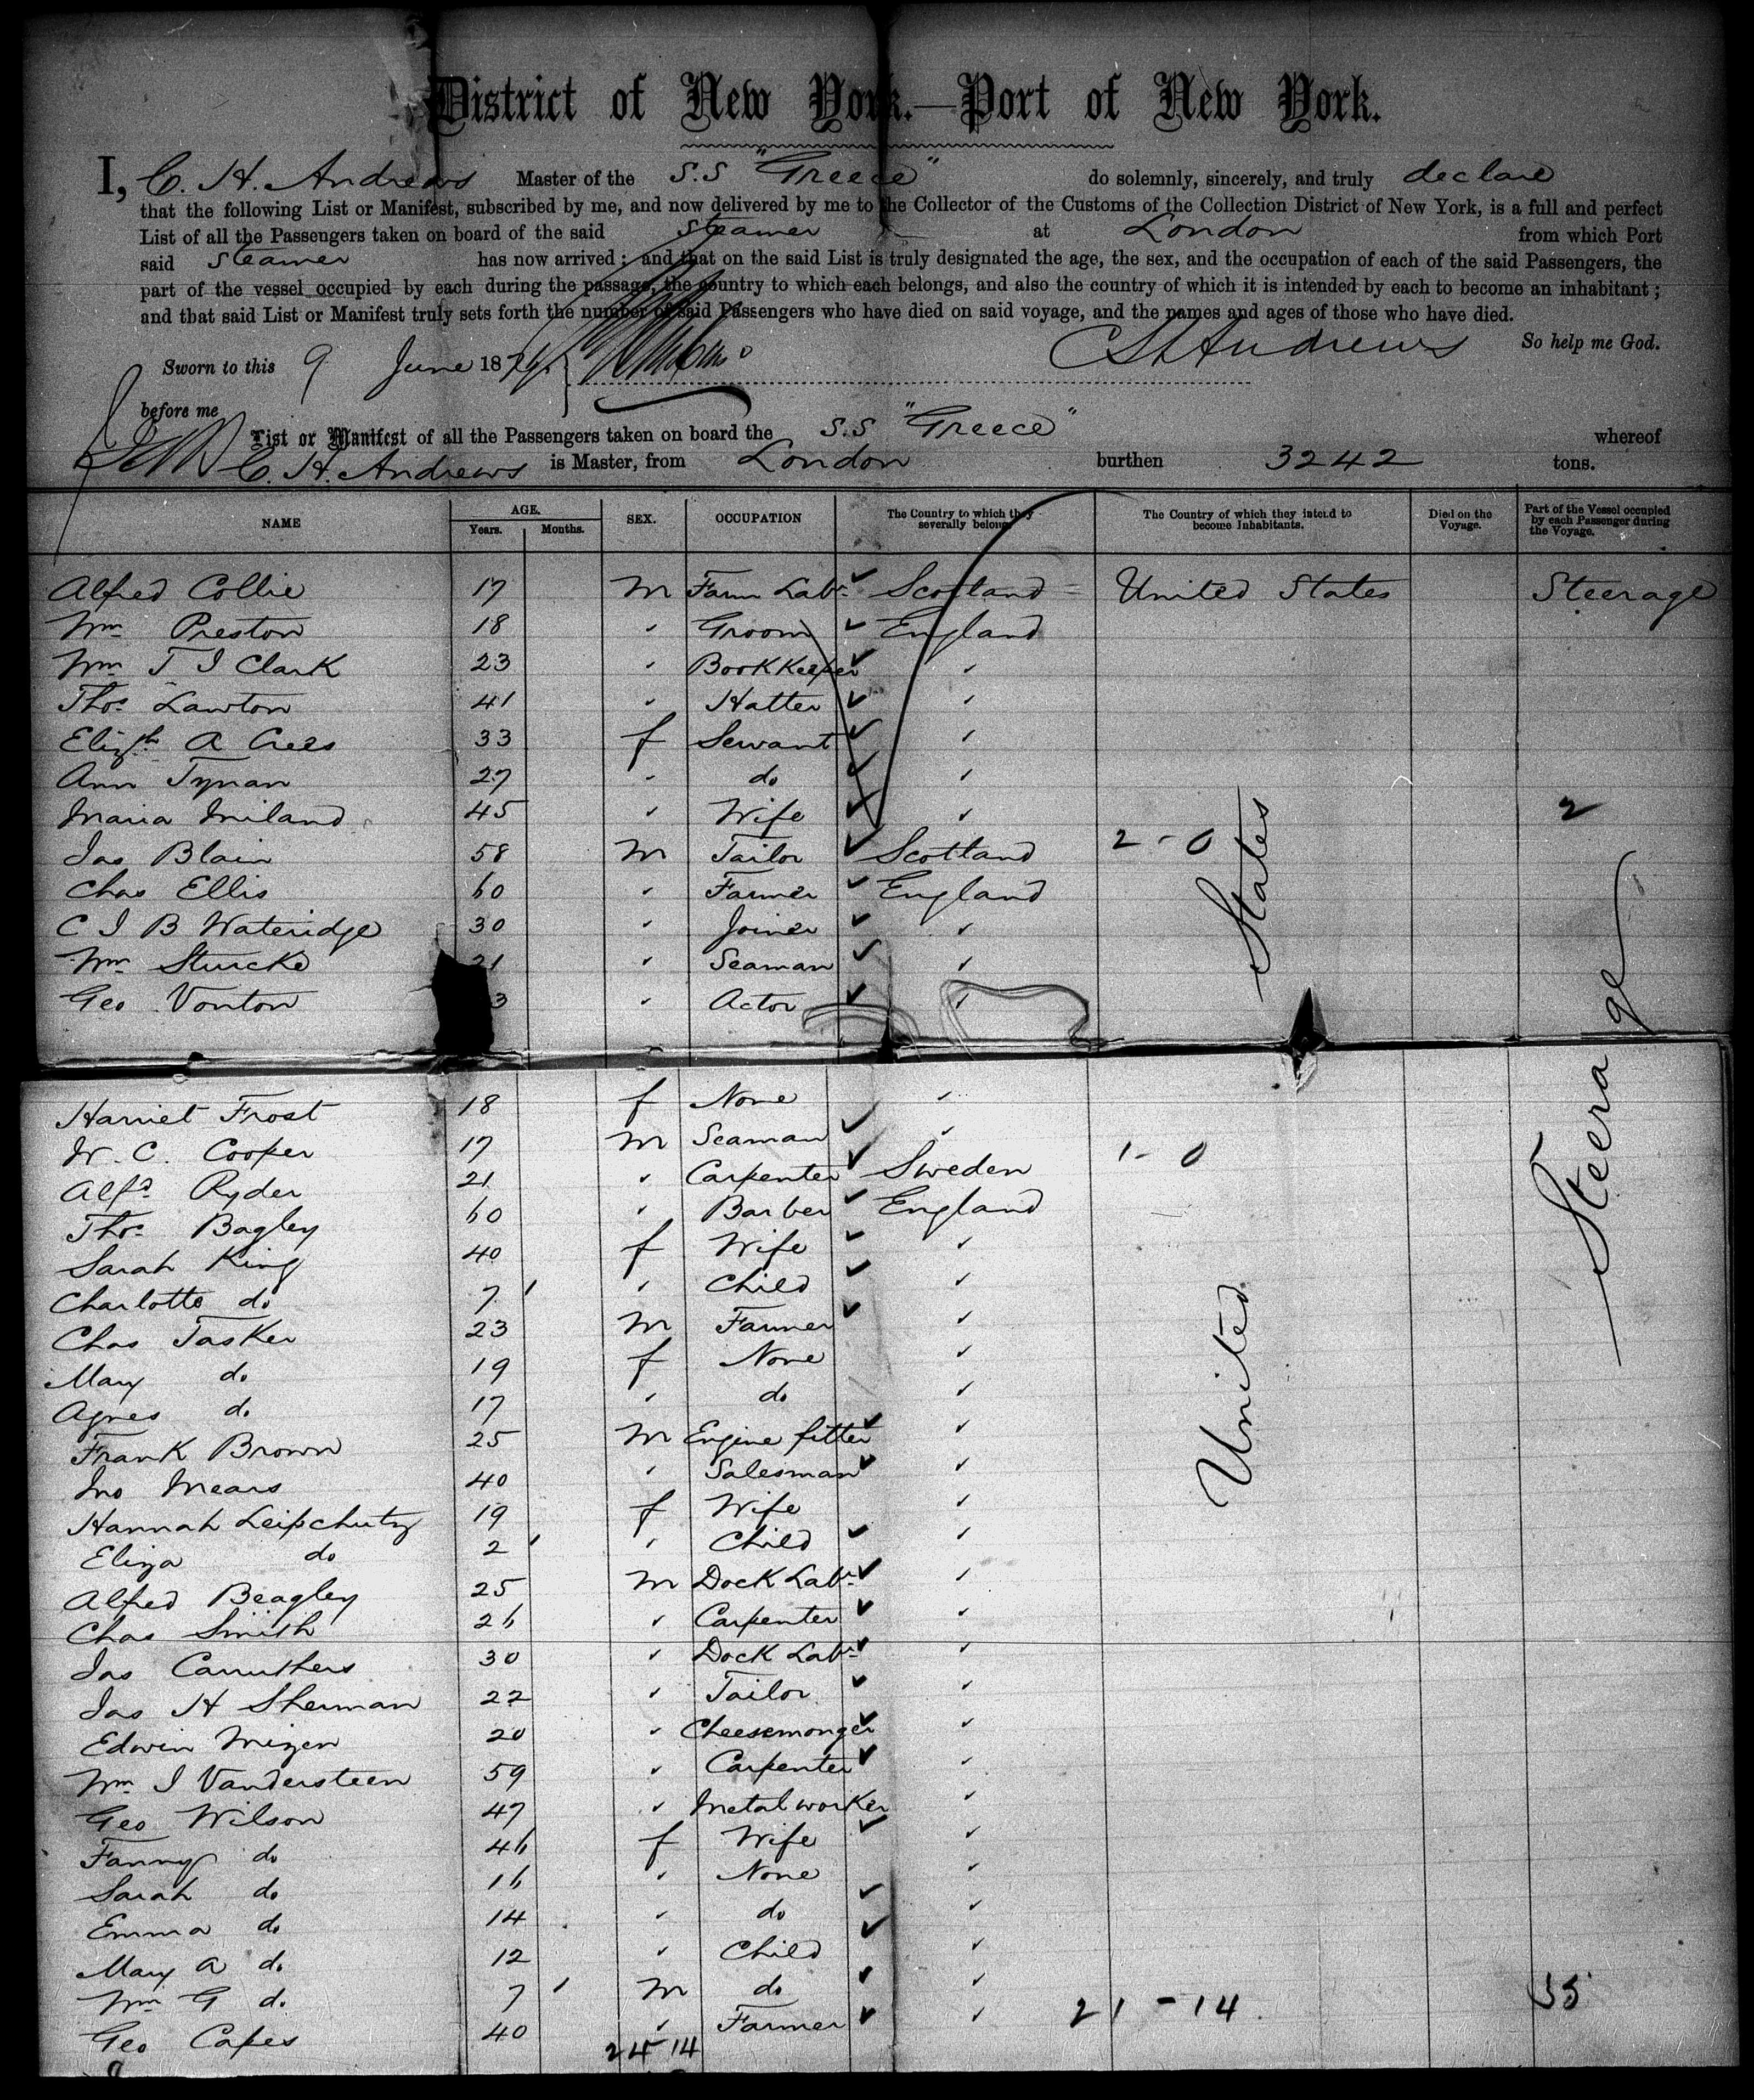 District of New York.—Port of New York.
I, C. H. Andrews Master of the S.S "Greece" do solemnly, sincerely, and truly declare
that the following List or Manifest, subscribed by me, and now delivered by me to the Collector of the Customs of the Collection District of New York, is a full and perfect
List of all the Passengers taken on board of the said Steamer at London from which Port
said Steamer has now arrived; and that on the said List is truly designated the age, the sex, and the occupation of each of the said Passengers, the
part of the vessel occupied by each during the passage, the country to which each belongs, and also the country of which it is intended by each to become an inhabitant;
and that said List or Manifest truly sets forth the number of said Passengers who have died on said voyage, and the names and ages of those who have died.
CHAndrews So help me God.
Sworn to this 9 June 187
before me
List or Manifest of all the Passengers taken on board the S.S "Greece" whereof
C. H. Andrews is Master, from London burthen 3242 tons.
NAME AGE. Years. Months. SEX. OCCUPATION The Country to which they severally belong. The Country of which they intend to become Inhabitants. Died on the Voyage. Part of the Vessel occupied by each Passenger during the Voyage.
Alfred Collie 17 M Farm Labr ✓ Scotland = United States Steerage
Wm Preston 18 " Groom ✓ England
Wm T J Clark 23 " BookKeeper ✓ "
Thos Lawton 41 " Hatter ✓ "
Elizth A 33 f Servant ✓ "
Ann Tynan 27 " do ✓ "
Maria Miland 45 " Wife ✓ " 2
Jas Blain 58 M Tailor ✓ Scotland 2 - 0
Chas Ellis 60 " Farmer ✓ England
C J B Wateridge 30 " Joiner ✓ "
Wm Stucke 21 " Seaman ✓ "
Geo Vonton 3 " Actor ✓ "
Harriet Frost 18 f None "
W. C. Cooper 17 M Seaman ✓ "
Alfd Ryder 21 " Carpenter ✓ Sweden 1 - 0
Thos Bagley 60 " Barber ✓ England
Sarah King 40 f Wife ✓ "
Charlotte do 7 " Child ✓ "
Chas Tasker 23 M Farmer ✓ "
Mary do 19 f None "
Agnes do 17 " do "
Frank Brown 25 M Engine fitter ✓ "
Jno Mears 40 " Salesman ✓ "
Hannah Leipchutz 19 f Wife "
Eliza do 2 " Child ✓ "
Alfred Beagley 25 M Dock Labr ✓ "
Chas Smith 26 " Carpenter ✓ "
Jas Carruthers 30 " Dock Labr ✓ "
Jas H Sherman 22 " Tailor ✓ "
Edwin Mizen 20 " Cheesemonger ✓ "
Wm J Vandersteen 59 " Carpenter ✓ "
Geo Wilson 47 " Metal worker "
Fanny do 46 f Wife ✓ "
Sarah do 16 " None "
Emma do 14 " do ✓ "
Mary A do 12 " Child ✓ "
Wm G do 7 M do ✓ "
Geo Capes 40 " Farmer ✓ " 21 - 14 35
24 14
United States
Steerage